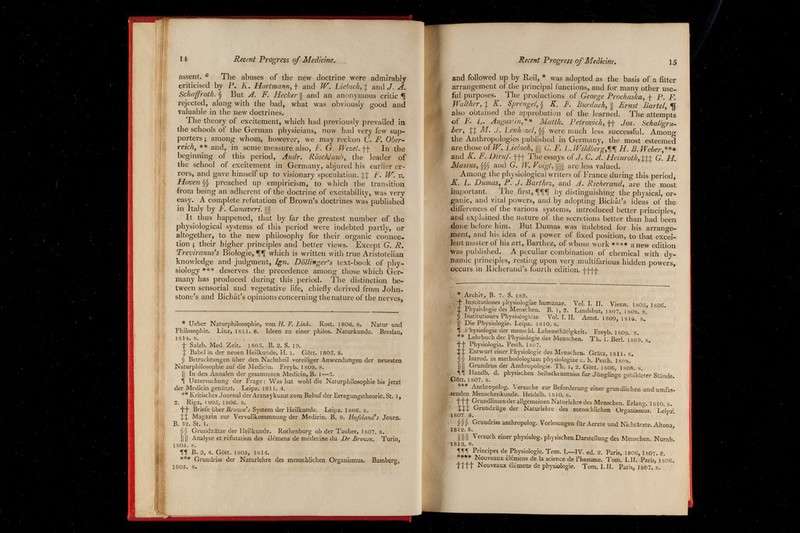 14 Recent Progress of Medicine.
assent. * The abuses of the new doctrine were admirably
criticised by P. K. Hartmann, † and W. Liebsch, ‡ and J. A.
Schaffroth. § But A. F. Hecker || and an anonymous critic ¶
rejected, along with the bad, what was obviously good and
valuable in the new doctrines.
The theory of excitement, which had previously prevailed in
the schools of the German physicians, now had very few sup-
porters; among whom, however, we may reckon C. F. Ober-
reich, ** and, in some measure also, F. G. Wezel. †† In the
beginning of this period, Andr. Röschlaub, the leader of
the school of excitement in Germany, abjured his earlier er-
rors, and gave himself up to visionary speculation. ‡‡ F. W. v.
Hoven §§ preached up empiricism, to which the transition
from being an adherent of the doctrine of excitability, was very
easy. A complete refutation of Brown's doctrines was published
in Italy by F. Canaveri. ||||
It thus happened, that by far the greatest number of the
physiological systems of this period were indebted partly, or
altogether, to the new philosophy for their organic connec-
tion; their higher principles and better views. Except G. R.
Treviranus's Biologie, ¶¶ which is written with true Aristotelian
knowledge and judgment, Ign. Döllinger's text-book of phy-
siology *** deserves the precedence among those which Ger-
many has produced during this period. The distinction be-
tween sensorial and vegetative life, chiefly derived from John-
stone's and Bichât's opinions concerning the nature of the nerves,
* Ueber Naturphilosophie, von H. F. Link. Rost. 1806. 8. Natur und
Philosophie. Linz, 1811. 8. Ideen zu einer philos. Naturkunde. Breslau,
1814. 8.
† Salzb. Med. Zeit. 1805. B. 2. S. 19.
‡ Babel in der neuen Heilkunde, H. 1. Gött. 1805. 8.
§ Betrachtungen über den Nachtheil voreiliger Anwendungen der neuesten
Naturphilosophie auf die Medicin. Freyb. 1809. 8.
|| In den Annalen der gesammten Medicin, B. 1—3.
¶ Untersuchung der Frage: Was hat wohl die Naturphilosophie bis jetzt
der Medicin genützt. Leipz. 1811. 4.
** Kritisches Journal der Arzneykunst zum Behuf der Erregungstheorie. St. 1,
2. Riga, 1805, 1806. 8.
†† Briefe über Brown's System der Heilkunde. Leipz. 1806. 8.
‡‡ Magazin zur Vervollkommnung der Medizin. B. 9. Hufeland's Journ.
B. 32. St. 1.
§§ Grundsätze der Heilkunde. Rothenburg ob der Tauber, 1807. 8.
|||| Analyse et réfutation des élémens de médecine du Dr Brown. Turin,
1805. 8.
¶¶ B. 3, 4. Gött. 1805, 1814.
*** Grundriss der Naturlehre des menschlichen Organismus. Bamberg,
1805. 8.
Recent Progress of Medicine. 15
and followed up by Reil, * was adopted as the basis of a fitter
arrangement of the principal functions, and for many other use-
ful purposes. The productions of George Prochaska, † P. F.
Walther, ‡ K. Sprengel, § K. F. Burdach, || Ernst Bartel, ¶
also obtained the approbation of the learned. The attempts
of F. L. Augustin, ** Matth. Petrovich, †† Jos. Schallgru-
ber, ‡‡ M. J. Lenhossek, §§ were much less successful. Among
the Anthropologies published in Germany, the most esteemed
are those of W. Liebsch, |||| C. F. L. Wildberg, ¶¶ H. B. Weber, ***
and K. F. Dirnf. ††† The essays of J. C. A. Heinroth, ‡‡‡ G. H.
Masius, §§§ and G. W. Voigt, |||||| are less valued.
Among the physiological writers of France during this period,
K. L. Dumas, P. J. Barthez, and A. Richerand, are the most
important. The first, ¶¶¶ by distinguishing the physical, or-
ganic, and vital powers, and by adopting Bichât's ideas of the
differences of the various systems, introduced better principles,
and explained the nature of the secretions better than had been
done before him. But Dumas was indebted for his arrange-
ment, and his idea of a power of fixed position, to that excel-
lent master of his art, Barthez, of whose work **** a new edition
was published. A peculiar combination of chemical with dy-
namic principles, resting upon very multifarious hidden powers,
occurs in Richerand's fourth edition. ††††
* Archiv, B. 7. S. 189.
† Institutiones physiologiae humanae. Vol. I. II. Vienn. 1805, 1806.
‡ Physiologie des Menschen. B. 1, 2. Landshut, 1807, 1808. 8.
§ Institutiones Physiologicae. Vol. I. II. Amst. 1809, 1810. 8.
|| Die Physiologie. Leipz. 1810. 8.
¶ Physiologie der menschl. Lebensthätigkeit. Freyb. 1809. 8.
** Lehrbuch der Physiologie des Menschen. Th. 1. Berl. 1809. 8.
†† Physiologia. Pesth. 1807.
‡‡ Entwurf einer Physiologie des Menschen. Grätz, 1811. 8.
§§ Introd. in methodologiam physiologiae c. h. Pesth. 1808.
|||| Grundriss der Anthropologie. Th. 1, 2. Gött. 1806, 1808. 8.
¶¶ Handb. d. physischen Selbstkenntniss für Jünglinge gebildeter Stände.
Gött. 1807. 8.
*** Anthropolog. Versuche zur Beforderung einer grundlichen und umfas-
senden Menschenkunde. Heidelb. 1810. 8.
††† Grundlinien der allgemeinen Naturlehre des Menschen. Erlang. 1810. 8.
‡‡‡ Grundzüge der Naturlehre des menschlichen Organismus. Leipz.
1807. 8.
§§§ Grundriss anthropolog. Vorlesungen für Aerzte und Nichtärzte. Altona,
1812. 8.
|||||| Versuch einer physiolog. physischen Darstellung des Menschen. Nurnb.
1813. 8.
¶¶¶ Principes de Physiologie. Tom. I.—IV. ed. 2. Paris, 1806, 1807. 8.
**** Nouveaux élémens de la science de l'homme. Tom. I. II. Paris, 1806.
†††† Nouveaux élémens de physiologie. Tom. I. II. Paris, 1807. 8.